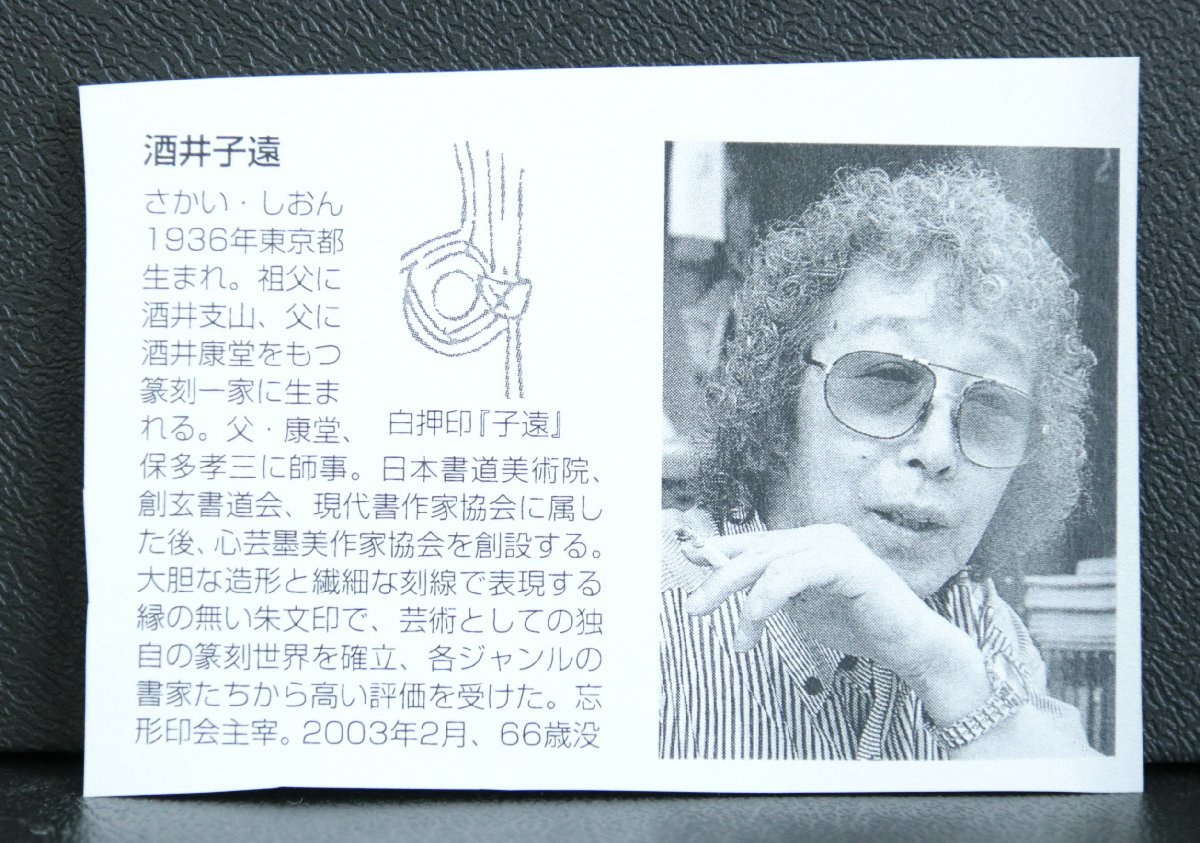 酒井子遠
さかい・しおん
1936年東京都
生まれ。祖父に
酒井支山、父に
酒井康堂をもつ
篆刻一家に生ま
れる。父・康堂、
白押印『子遠』
保多孝三に師事。日本書道美術院、
創玄書道会、現代書作家協会に属し
た後、心芸墨美作家協会を創設する。
大胆な造形と繊細な刻線で表現する
縁の無い朱文印で、芸術としての独
自の篆刻世界を確立、各ジャンルの
書家たちから高い評価を受けた。忘
形印会主宰。2003年2月、66歳没